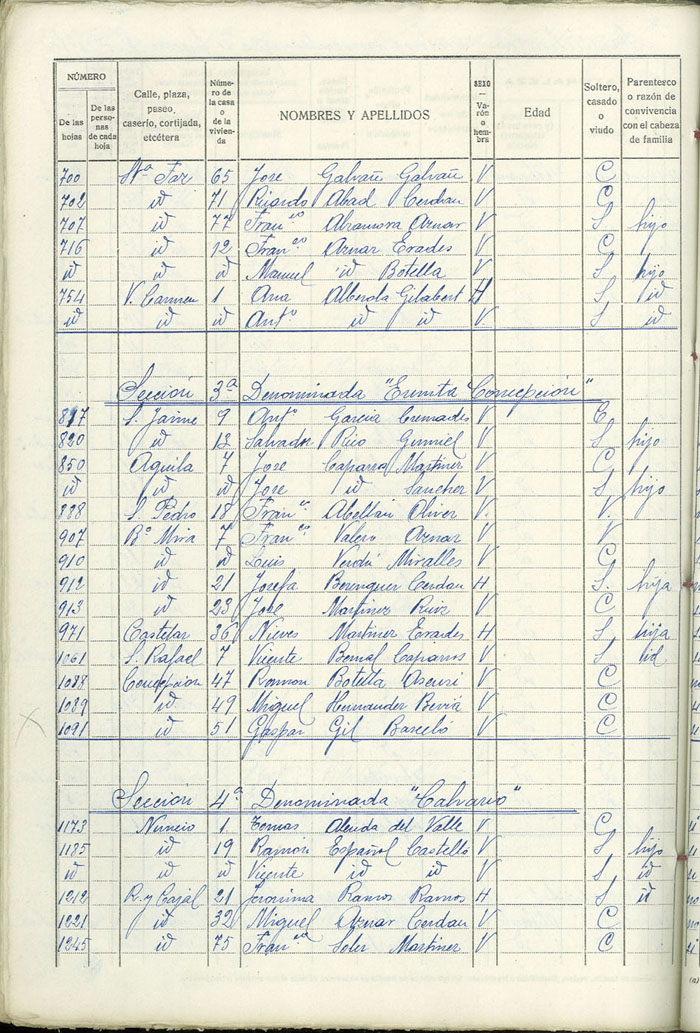 NÚMERO
De las hojas
De las personas de cada hoja
Calle, plaza, paseo, caserío, cortijada, etcétera
Número de la casa o de la vivienda
NOMBRES Y APELLIDOS
SEXO — Varón o hembra
Edad
Soltero, casado o viudo
Parentesco o razón de convivencia con el cabeza de familia
700 Stª Faz 65 Jose Galvañ Galvañ V C
702 id 71 Ricardo Abad Cerdan V C
707 id 77 Franco Aznar V S hijo
716 id 12 Franco Aznar Erades V C
id id id Manuel id Botella V S hijo
754 V. Carmen 1 Ana Alberola Gilabert H S id
id id id Antº id id V. S id
Sección 3ª Denominada "Ermita Concepción"
817 S. Jaime 9 Antº Garcia Cremades V C
820 id 13 Salvador V S hijo
850 Aguila 7 Jose Caparros Martinez V C
id id id Jose id Sanchez V S hijo
888 S. Pedro 18 Franco Abellan Oliver V. V.
907 Bº Mira 7 Franco Valero Aznar V V
910 id id Luis Verdú Miralles V C
912 id 21 Josefa Berenguer Cerdan H S. hija
913 id 23 Jose Martinez Ruiz V C
971 Castelar 36 Nieves Martinez Erades H S hija
1061 S. Rafael 7 Vicente Bernal Caparros V S id
1088 Concepcion 47 Ramon Botella Asensi V C
1089 id 49 Miguel Hernandez V C
1091 id 51 Gaspar Gil Barceló V C
Sección 4ª Denominada "Calvario"
1173 Nuncio 1 Tomas Alenda del Valle V C
1185 id 19 Ramón Español Castelló V S hijo
id id id Vicente id id V S id
1212 R. y Cajal 21 Jeronima Ramos Ramos H S id
1221 id 32 Miguel Aznar Cerdan V C
1245 id 75 Franco Soler Martinez V C
(a)